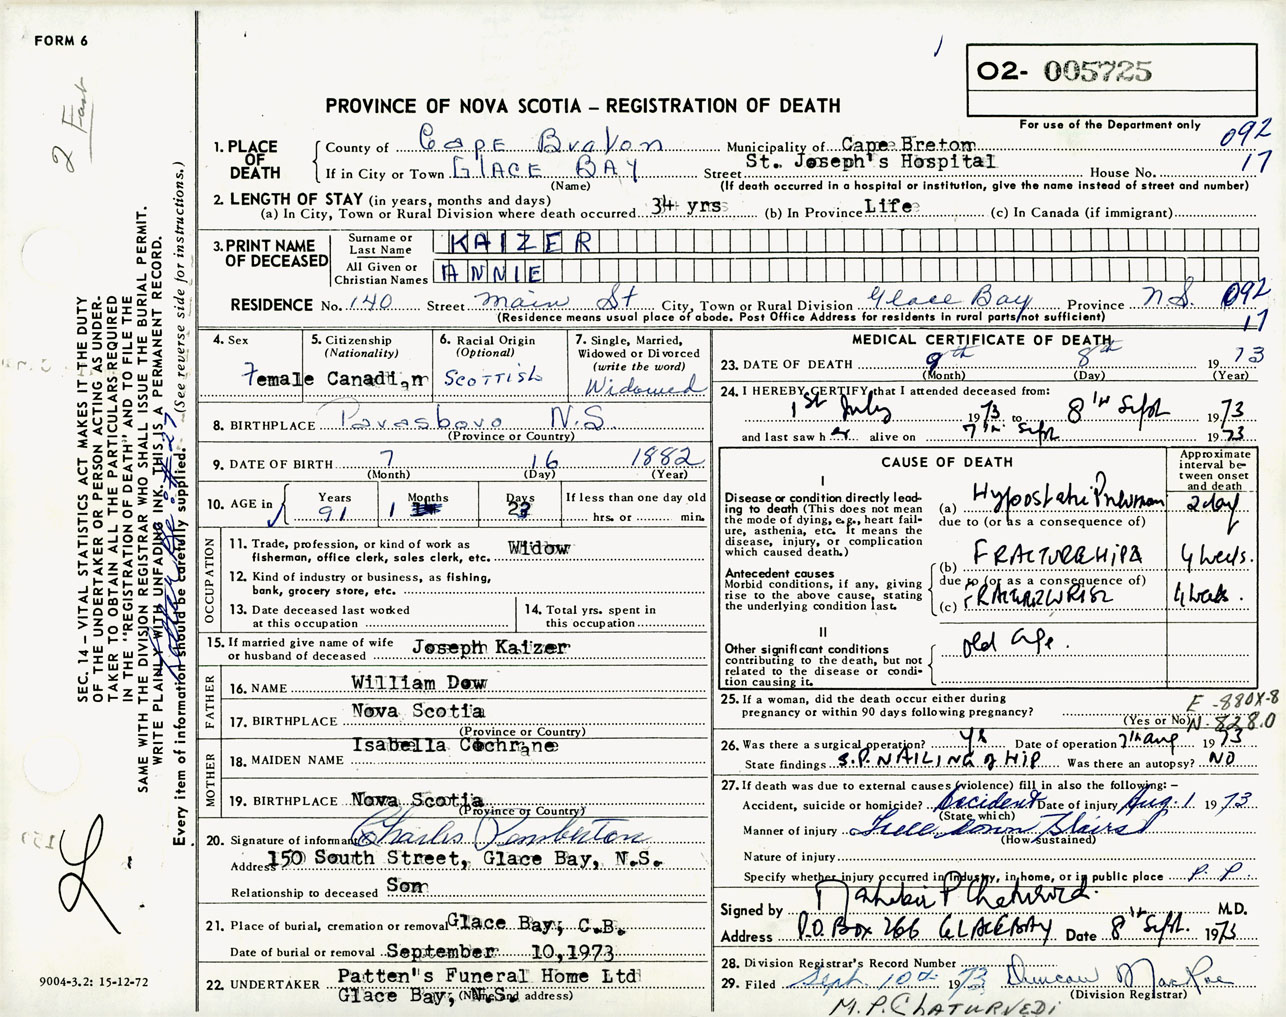 FORM 6
2 Fast
O2- 005725
PROVINCE OF NOVA SCOTIA – REGISTRATION OF DEATH
For use of the Department only
092
17
1. PLACE OF DEATH
County of Cape Breton Municipality of Cape Breton
If in City or Town GLACE BAY Street St. Joseph's Hospital House No.
(Name) (If death occurred in a hospital or institution, give the name instead of street and number)
2. LENGTH OF STAY (in years, months and days)
(a) In City, Town or Rural Division where death occurred 34 yrs (b) In Province Life (c) In Canada (if immigrant)
3. PRINT NAME OF DECEASED
Surname or Last Name KAIZER
All Given or Christian Names ANNIE
RESIDENCE No. 140 Street Main St City, Town or Rural Division Glace Bay Province N.S. 092
17
(Residence means usual place of abode. Post Office Address for residents in rural parts not sufficient)
4. Sex
Female
5. Citizenship
(Nationality)
Canadian
6. Racial Origin
(Optional)
Scottish
7. Single, Married, Widowed or Divorced
(write the word)
Widowed
8. BIRTHPLACE Parrsboro N.S
(Province or Country)
9. DATE OF BIRTH 7 16 1882
(Month) (Day) (Year)
10. AGE in
Years 91
Months 1
Days 23
If less than one day old
hrs. or min.
OCCUPATION
11. Trade, profession, or kind of work as fisherman, office clerk, sales clerk, etc. Widow
12. Kind of industry or business, as fishing, bank, grocery store, etc.
13. Date deceased last worked at this occupation
14. Total yrs. spent in this occupation
15. If married give name of wife or husband of deceased Joseph Kaizer
FATHER
16. NAME William Dow
17. BIRTHPLACE Nova Scotia
(Province or Country)
MOTHER
18. MAIDEN NAME Isabella Cochrane
19. BIRTHPLACE Nova Scotia
(Province or Country)
20. Signature of informant Charles Pemberton
Address 150 South Street, Glace Bay, N.S.
Relationship to deceased Son
21. Place of burial, cremation or removal Glace Bay, C.B.
Date of burial or removal September 10, 1973
22. UNDERTAKER Patten's Funeral Home Ltd
Glace Bay, N.S.
(Name and address)
MEDICAL CERTIFICATE OF DEATH
23. DATE OF DEATH 9th 8th 1973
(Month) (Day) (Year)
24. I HEREBY CERTIFY that I attended deceased from:
1st July 1973 to 8th Sept 1973
and last saw her alive on 7th Sept 1973
CAUSE OF DEATH
Approximate interval between onset and death
I
Disease or condition directly leading to death (This does not mean the mode of dying, e.g., heart failure, asthenia, etc. It means the disease, injury, or complication which caused death.)
(a) Hypostatic Pneumonia 2 day
due to (or as a consequence of)
Antecedent causes
Morbid conditions, if any, giving rise to the above cause, stating the underlying condition last.
(b) FRACTURE HIP 4 weeks.
due to (or as a consequence of)
(c) FRACTURE WRIST 4 weeks.
II
Other significant conditions contributing to the death, but not related to the disease or condition causing it.
old age.
25. If a woman, did the death occur either during pregnancy or within 90 days following pregnancy?
(Yes or No)
E-880X-8
N-828.0
26. Was there a surgical operation? Yes Date of operation 7th Aug 1973
State findings S.P. NAILING of HIP Was there an autopsy? NO
27. If death was due to external causes (violence) fill in also the following: –
Accident, suicide or homicide? Accident Date of injury Aug. 1 1973
(State which)
Manner of injury Fell down Stairs
(How sustained)
Nature of injury
Specify whether injury occurred in Industry, in home, or in public place P. P.
Signed by Mahabir P Chaturvedi. M.D.
Address P.O. Box 266 GLACE BAY Date 8th Sept. 1973
28. Division Registrar's Record Number
29. Filed Sept. 10th 1973 Duncan MacRae
(Division Registrar)
M. P. CHATURVEDI
SEC. 14 – VITAL STATISTICS ACT MAKES IT THE DUTY
OF THE UNDERTAKER OR PERSON ACTING AS UNDER-
TAKER TO OBTAIN ALL THE PARTICULARS REQUIRED
IN THE "REGISTRATION OF DEATH" AND TO FILE THE
SAME WITH THE DIVISION REGISTRAR WHO SHALL ISSUE THE BURIAL PERMIT.
WRITE PLAINLY WITH UNFADING INK. THIS IS A PERMANENT RECORD.
Every item of information should be carefully supplied. (See reverse side for instructions.)
9004-3.2: 15-12-72